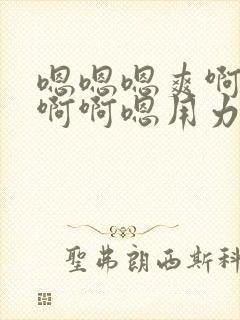 嗯嗯嗯爽啊
啊啊嗯用力
聖弗朗西斯科